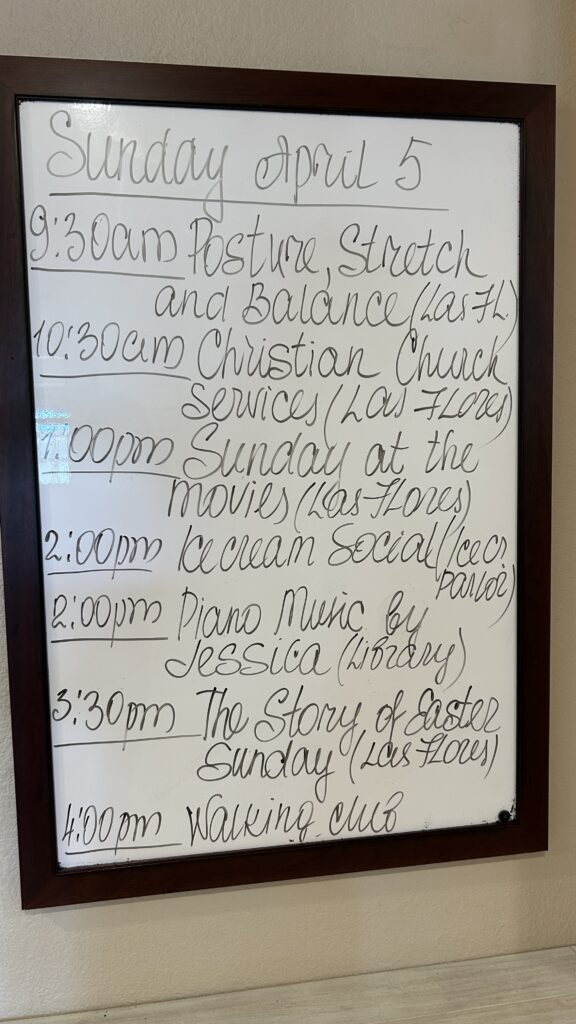 Sunday April 5
9:30am Posture, Stretch
and Balance (Las FL)
10:30am Christian Church
Services (Las Flores)
1:00pm Sunday at the
movies (Las Flores)
2:00pm Icecream Social (Icecr
Parlor)
2:00pm Piano Music by
Jessica (Library)
3:30pm The Story of Easter
Sunday (Las Flores)
4:00pm Walking club